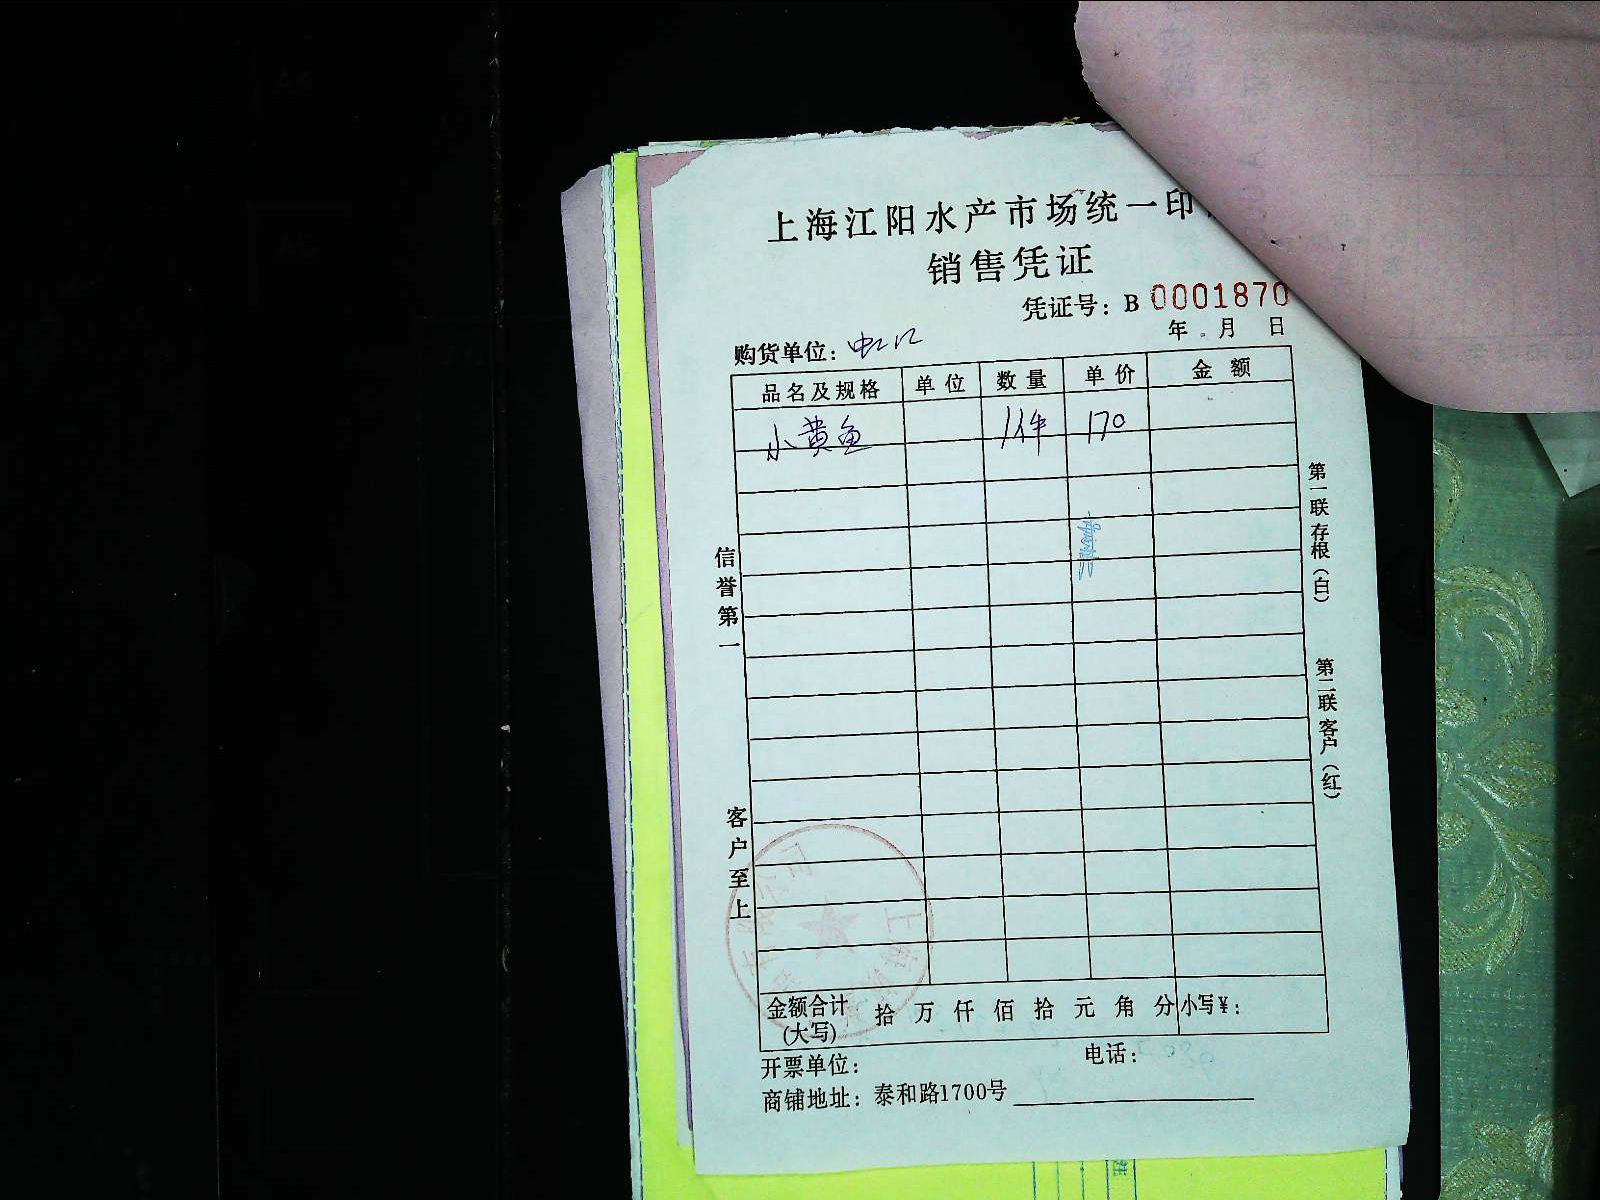 上海江阳水产市场统一印
销售凭证
凭证号：B 0001870
年 月 日
购货单位：虹江
品名及规格 单位 数量 单价 金额
小黄鱼 1件 170
信誉第一
客户至上
第一联存根（白）
第二联客户（红）
金额合计（大写） 拾 万 仟 佰 拾 元 角 分 小写¥：
开票单位： 电话：
商铺地址：泰和路1700号